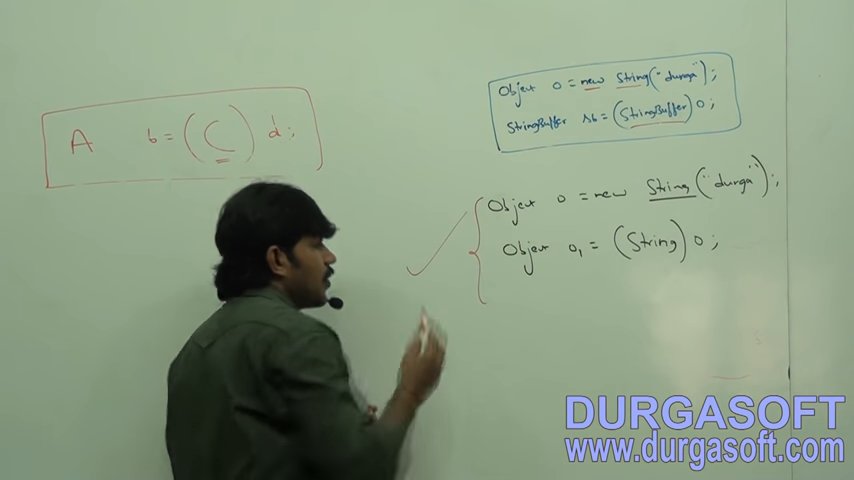 A b = (C) d;
Object o = new String("durga");
StringBuffer sb = (StringBuffer) o;
Object o = new String("durga");
Object o1 = (String) o;
DURGASOFT
www.durgasoft.com